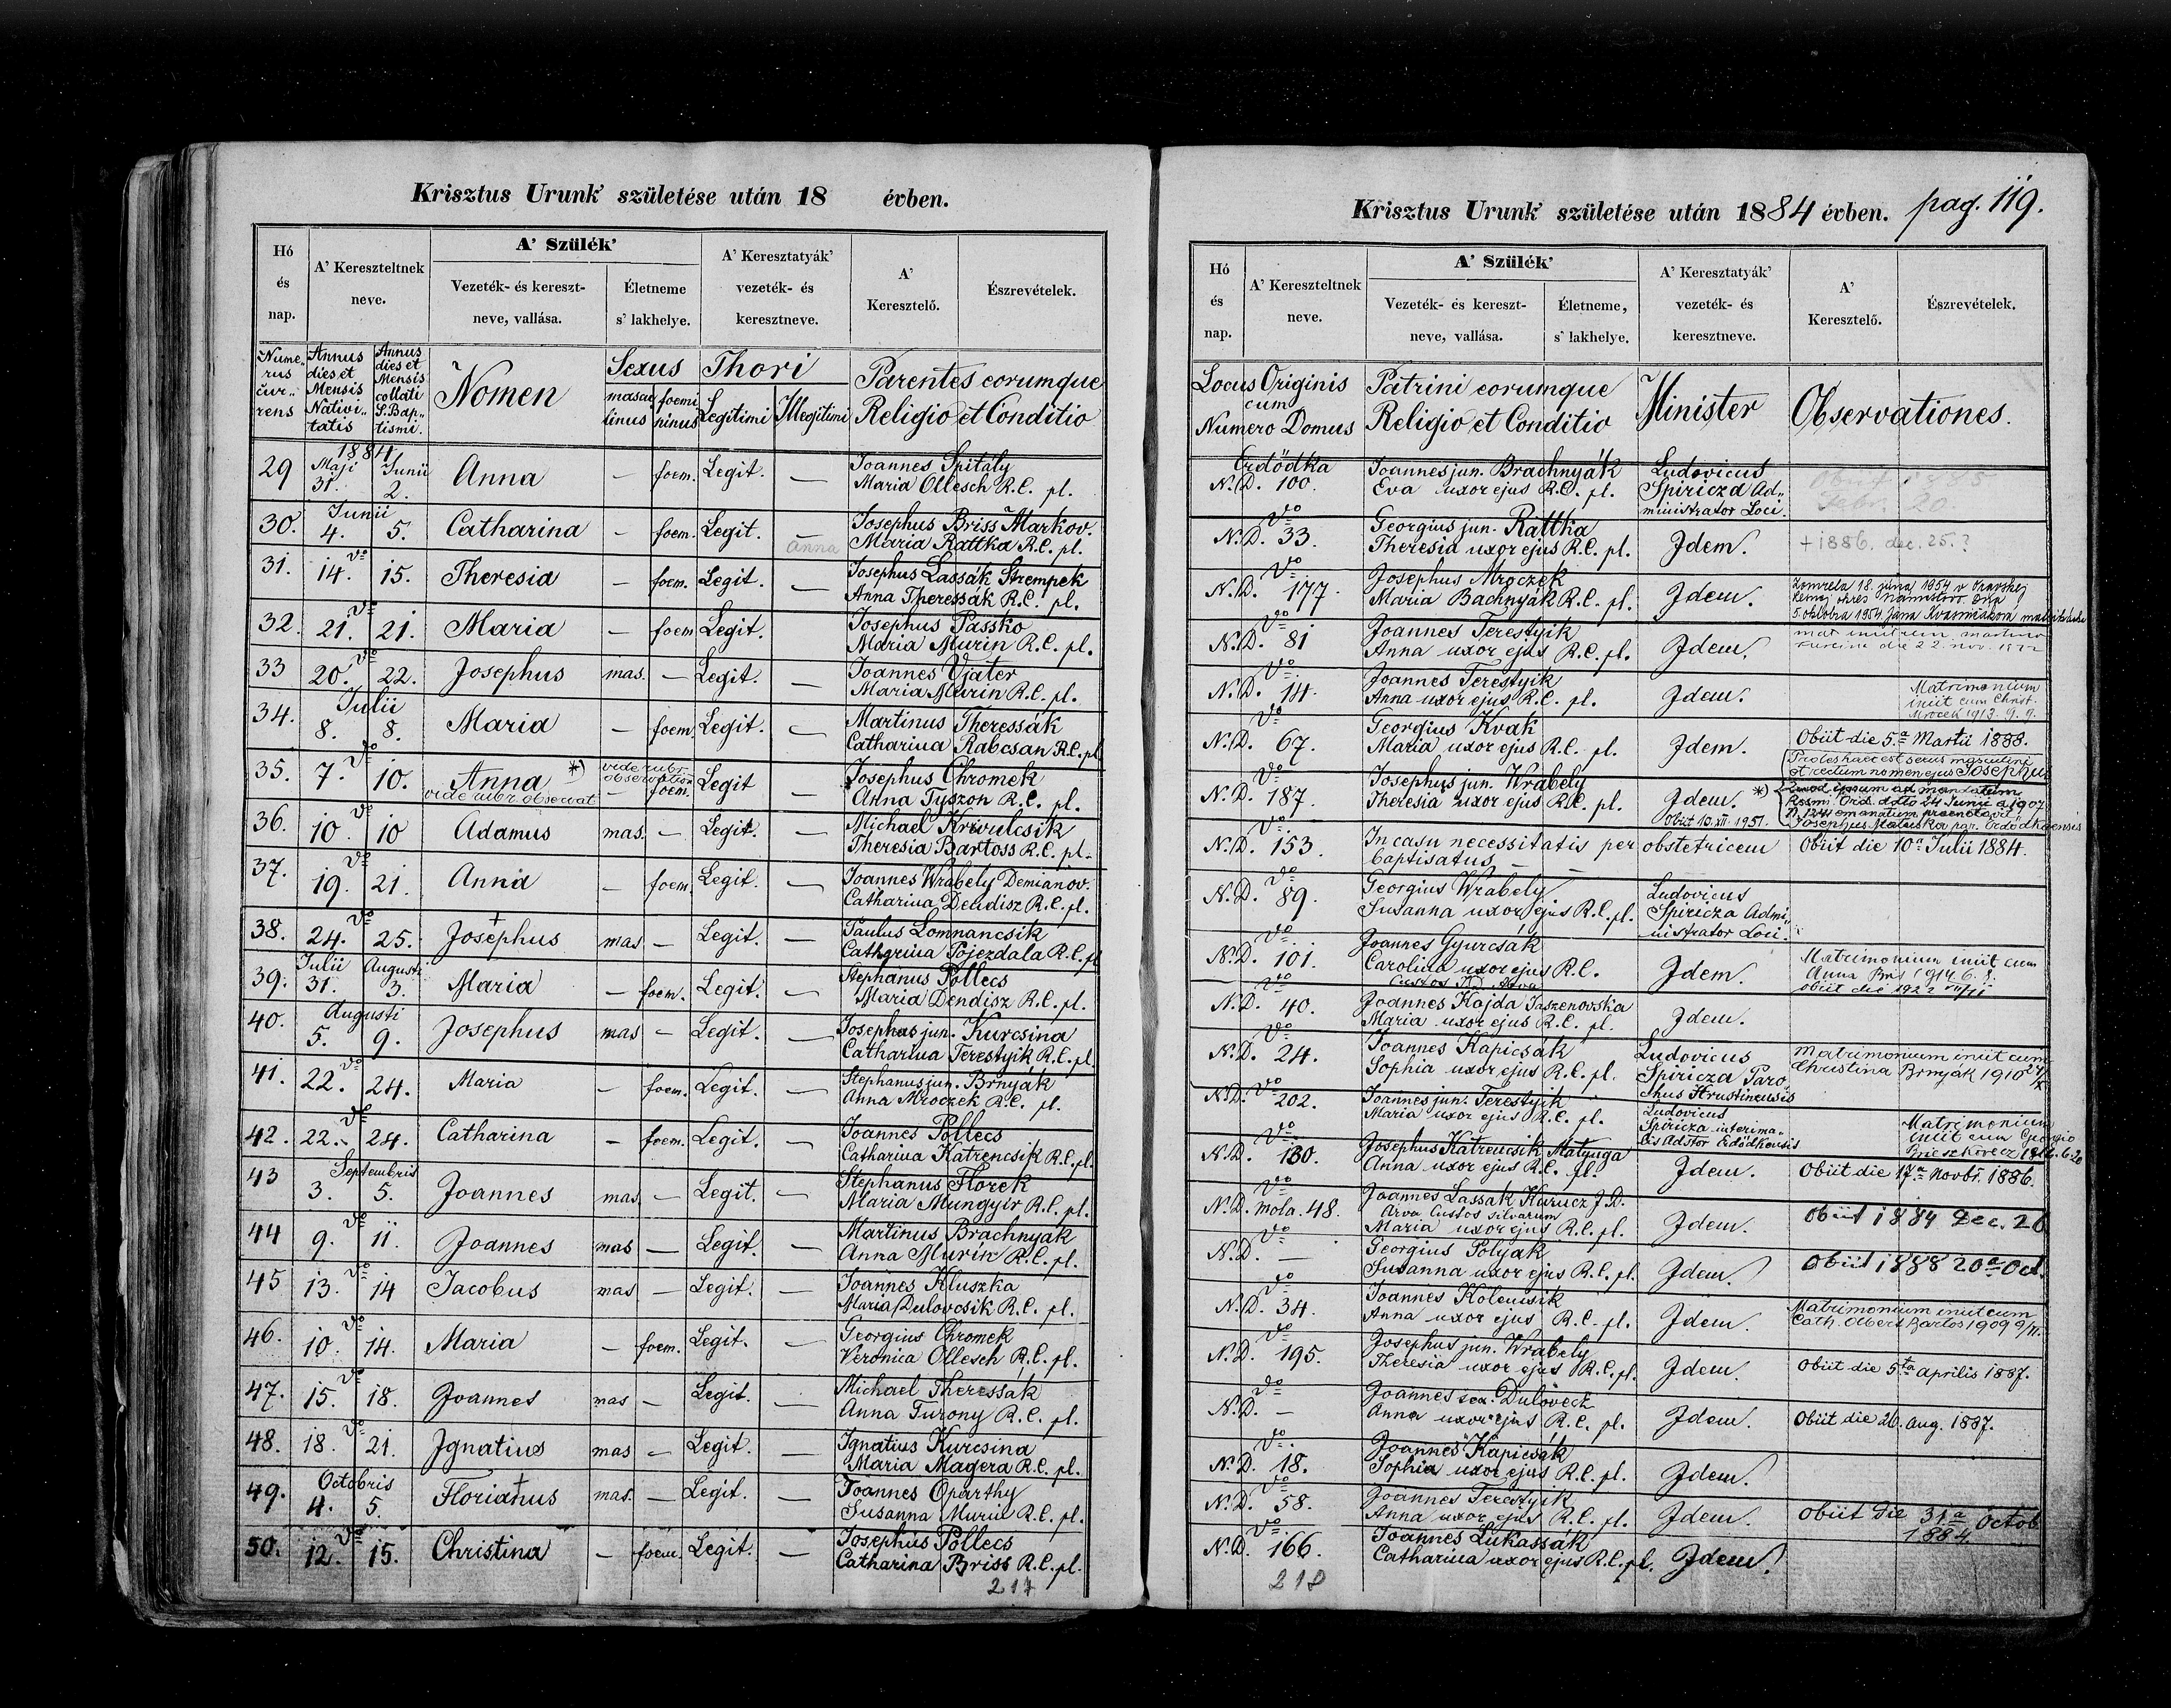 Krisztus Urunk' születése után 18 évben.
Hó és nap.
A' Kereszteltnek neve.
A' Szülék'
Vezeték- és kereszt-neve, vallása.
Életneme s' lakhelye.
A' Keresztatyák' vezeték- és keresztneve.
A' Keresztelő.
Észrevételek.
Numerus currens
Annus dies et Mensis Nativitatis
Annus dies et Mensis collati S. Baptismi.
Nomen
Sexus
masculinus
foemininus
Thori
Legitimi
Illegitimi
Parentes eorumque
Religio et Conditio
1884
29 Maji 31. Junii 2. Anna — foem. Legit. — Joannes Spitaly
Maria Ollesch R.C. pl.
30. Junii 4. 5. Catharina — foem. Legit. — Josephus Briss Markov.
anna Maria Rattka R.C. pl.
31. 14. vo 15. Theresia — foem. Legit. — Josephus Lassák Strempek
Anna Theressák R.C. pl.
32. 21. vo 21. Maria — foem Legit. Josephus Passko
Maria Murin R.C. pl.
33 20. vo 22. Josephus mas. — Legit. — Joannes Vjater
Maria Murin R.C. pl.
34. Julii 8. 8. Maria — foem. Legit. — Martinus Theressák
Catharina Rabcsan R.C. pl
35. 7. vo 10. Anna *) vide rubr. observation — foem. Legit — Josephus Chromek
vide rubr. observat Anna Tyszon R.C. pl.
36. 10. vo 10 Adamus mas. — Legit. — Michael Krivulcsik
Theresia Bartoss R.C. pl.
37. 19. vo 21. Anna — foem. Legit. — Joannes Wrabely Demianov.
Catharina Dendisz R.C. pl.
38. 24. vo 25. Josephus + mas — Legit. — Paulus Lomnancsik
Catharina Pojezdala R.C. pl
39. Julii 31. Augusti 3. Maria — foem. Legit. — Stephanus Pollecs
Maria Dendisz R.C. pl.
40. Augusti 5. 9. Josephus mas — Legit. — Josephus jun. Kurcsina
Catharina Terestyik R.C. pl.
41. 22. vo 24. Maria — foem. Legit. — Stephanus jun. Brnyák
Anna Mroczek R.C. pl.
42. 22. vo 24. Catharina — foem. Legit. — Joannes Pollecs
Catharina Katrencsik R.C. pl.
43 Septembris 3. 5. Joannes mas. — Legit. — Stephanus Florek
Maria Mungyir R.C. pl.
44 9. vo 11. Joannes mas — Legit. — Martinus Brachnyak
Anna Murin R.C. pl.
45 13. vo 14 Jacobus mas — Legit. — Joannes Kluszka
Maria Dulovcsik R.C. pl.
46. 10. vo 14. Maria — foem. Legit. — Georgius Chromek
Veronica Ollesch R.C. pl.
47. 15. vo 18. Joannes mas — Legit. Michael Theressak
Anna Turony R.C. pl.
48. 18. vo 21. Ignatius mas — Legit. Ignatius Kurcsina
Maria Magera R.C. pl.
49. Octobris 4. 5. Florianus + mas. — Legit. — Joannes Oparthy
Susanna Murin R.C. pl.
50. 12. vo 15. Christina — foem. Legit. — Josephus Pollecs
Catharina Briss R.C. pl.
217
Krisztus Urunk' születése után 1884 évben. pag. 119.
Hó és nap.
A' Kereszteltnek neve.
A' Szülék'
Vezeték- és kereszt-neve, vallása.
Életneme, s' lakhelye.
A' Keresztatyák' vezeték- és keresztneve.
A' Keresztelő.
Észrevételek.
Locus Originis cum Numero Domus
Patrini eorumque
Religio et Conditio
Minister
Observationes.
Erdődka
N. D. 100. Joannes jun. Brachnyák
Eva uxor ejus R.C. pl.
Ludovicus Spiricza Administrator Loci.
Obiit 1885
Febr. 20
vo N. D. 33. Georgius jun. Rattka
Theresia uxor ejus R.C. pl. Idem. +1886. dec. 25.?
vo N. D. 177. Josephus Mroczek
Maria Bachnyák R.C. pl. Idem.
Zomrela 18. júna 1954 v Oravskej
5. októbra 1954
vo N. D. 81 Joannes Terestyik
Anna uxor ejus R.C. pl. Idem.
die 22. nov.
vo N. D. 14. Joannes Terestyik
Anna uxor ejus R.C. pl. Idem.
Matrimonium
iniit cum Christ.
Mrocek 1913. 9. 9.
vo N. D. 67. Georgius Kvak
Maria uxor ejus R.C. pl. Idem. Obiit die 5.a Martii 1888.
vo N. D. 187. Josephus jun. Wrabely
Theresia uxor ejus R.C. pl. Idem. *)
Obiit 10.XII.1951.
Proles haec est sexus masculini
et rectum nomen ejus Josephus
Quod ipsum ad mandatum
Rssmi Ord. ddto 24 Junii a 1907
N. 1241 emanatum praenotavi
Josephus Matuska par. Erdődkaensis
vo N. D. 153. In casu necessitatis per obstetricem
baptisatus — Obiit die 10a Julii 1884.
vo N. D. 89. Georgius Wrabely
Susanna uxor ejus R.C. pl.
Ludovicus
Spiricza Administrator Loci.
vo N. D. 101. Joannes Gyurcsák
Carolina uxor ejus R.C. Idem.
Custos
Matrimonium iniit cum
Anna 1914. 6. 8.
obiit die
vo N. D. 40. Joannes Kajda Jaszenovska
Maria uxor ejus R.C. pl. Idem.
vo N. D. 24. Joannes Kapicsák
Sophia uxor ejus R.C. pl.
Ludovicus
Spiricza Parochus Hrustinensis
Matrimonium iniit cum
Christina Brnyák 1910
N. D. vo 202. Joannes jun. Terestyik
Maria uxor ejus R.C. pl.
Ludovicus
Spiricza interimalis Adstor Erdődkensis
Matrimonium
iniit cum Georgio
vo N. D. 130. Josephus Katrencsik Matyuga
Anna uxor ejus R.C. pl. Idem. Obiit die 17.a Novbr. 1886.
vo N. D. mola. 48. Joannes Lassak Kurucz J. D.
Arva Custos silvarum
Maria uxor ejus R.C. pl. Idem. Obiit 1884 Dec. 26
vo N. D. — Georgius Polyak
Susanna uxor ejus R.C. pl. Idem. Obiit 1888 20a Oct.
vo N. D. 34. Joannes Kolencsik
Anna uxor ejus R.C. pl. Idem.
Matrimonium iniit cum
Cath. Bartos 1909
vo N. D. 195. Josephus jun. Wrabely
Theresia uxor ejus R.C. pl. Idem. Obiit die 5ta Aprilis 1887.
vo N. D. — Joannes sen. Duloveck
Anna uxor ejus R.C. pl. Idem. Obiit die 26. Aug. 1887.
vo N. D. 18. Joannes Kapicsák
Sophia uxor ejus R.C. pl. Idem.
vo N. D. 58. Joannes Terestyik
Anna uxor ejus R.C. pl. Idem. Obiit Die 31a Octob
1884.
vo N. D. 166. Joannes Lukassák
Catharina uxor ejus R.C. pl. Idem.
218